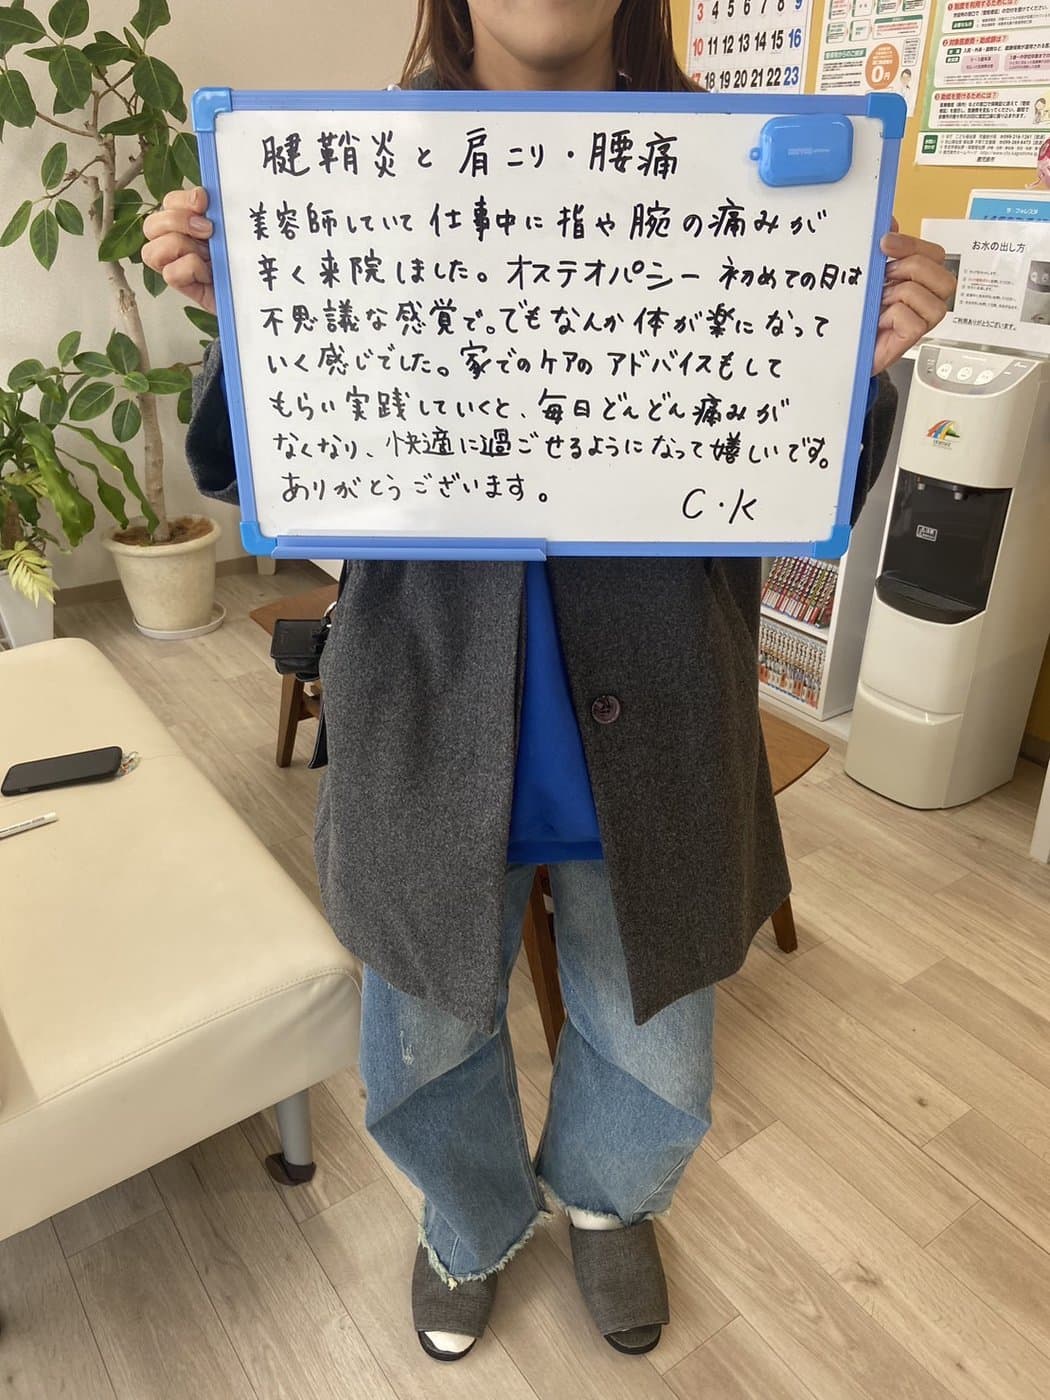 腱鞘炎と肩こり・腰痛
美容師していて仕事中に指や腕の痛みが
辛く来院しました。オステオパシー初めての日は
不思議な感覚で。でもなんか体が楽になって
いく感じでした。家でのケアのアドバイスもして
もらい実践していくと、毎日どんどん痛みが
なくなり、快適に過ごせるようになって嬉しいです。
ありがとうございます。
C・K
3 4 5 6 7 8 9
10 11 12 13 14 15 16
17 18 19 20 21 22 23
0円
お水の出し方
ご利用ありがとうございます。